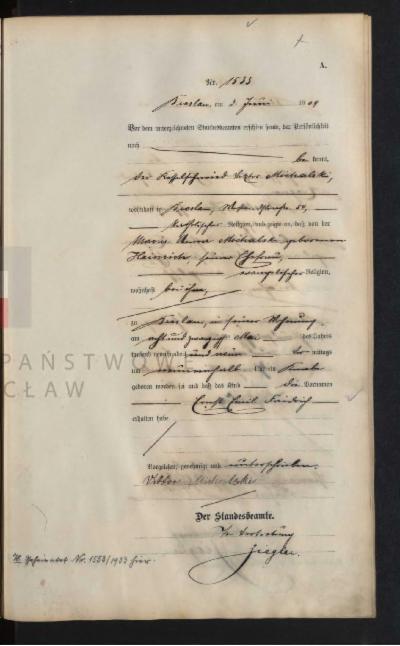 A.
Nr. 1533
Breslau, am 2 Juni 1909
Vor dem unterzeichneten Standesbeamten erschien heute, der Persönlichkeit
nach
be kannt,
der Kesselschmied Viktor Michalski,
wohnhaft in Breslau,
katholischer Religion, und zeigte an, daß von der
Maria Anna Michalski geborenen
Heinrich, seiner Ehefrau,
evangelischer Religion,
wohnhaft bei ihm,
zu Breslau, in seiner Wohnung
am acht und zwanzigsten Mai des Jahres
tausend neunhundert und neun vormittags
um neuneinhalb Uhr ein Knabe
geboren worden sei und daß das Kind die Vornamen
Ernst Emil Friedrich
erhalten habe.
Vorgelesen, genehmigt und unterschrieben.
Viktor Michalski
Der Standesbeamte.
In Vertretung
Ziegler
Nr. 1533/1933 hier.
PAŃSTWOWE
CŁAW